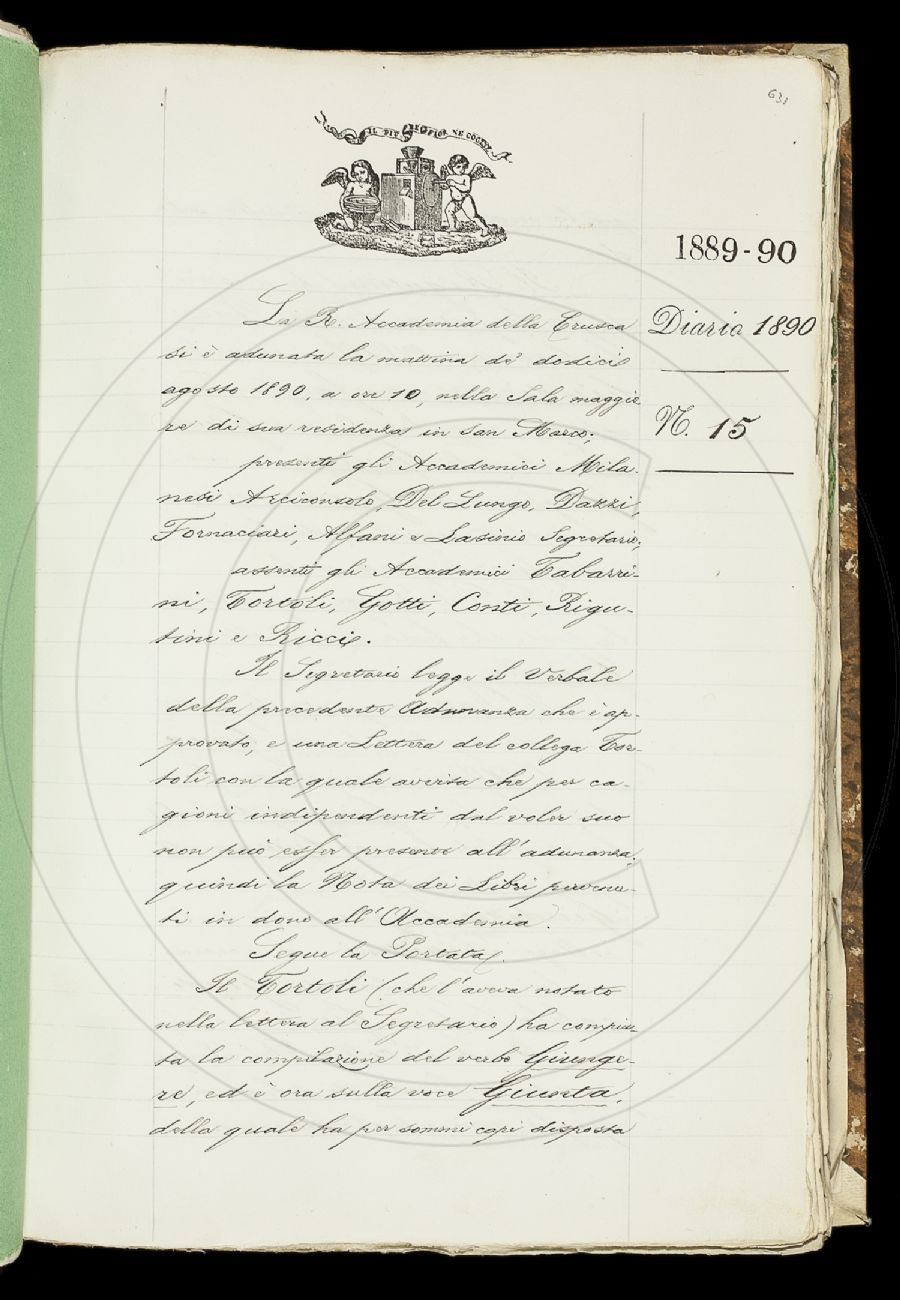 631
IL PIÙ BEL FIOR NE COGLIE
1889-90
Diario 1890
N. 15
La R. Accademia della Crusca
si è adunata la mattina de' dodici
agosto 1890, a ore 10, nella Sala maggio
re di sua residenza in San Marco;
presenti gli Accademici Mila-
nesi Arciconsolo, Del Lungo, Dazzi,
Fornaciari, Alfani e Lasinio Segretario;
assenti gli Accademici Tabarri-
ni, Tortoli, Gotti, Conti, Rigu-
tini e Ricci.
Il Segretario legge il Verbale
della precedente Adunanza che è ap-
provato, e una Lettera del collega Tor-
toli con la quale avvisa che per ca-
gioni indipendenti dal voler suo
non può esser presente all'adunanza;
quindi la Nota dei Libri pervenu-
ti in dono all'Accademia.
Segue la Portata.
Il Tortoli (che l'aveva notato
nella lettera al Segretario) ha compiu-
ta la compilazione del verbo Giunge-
re, ed è ora sulla voce Giunta,
della quale ha per sommi capi disposta